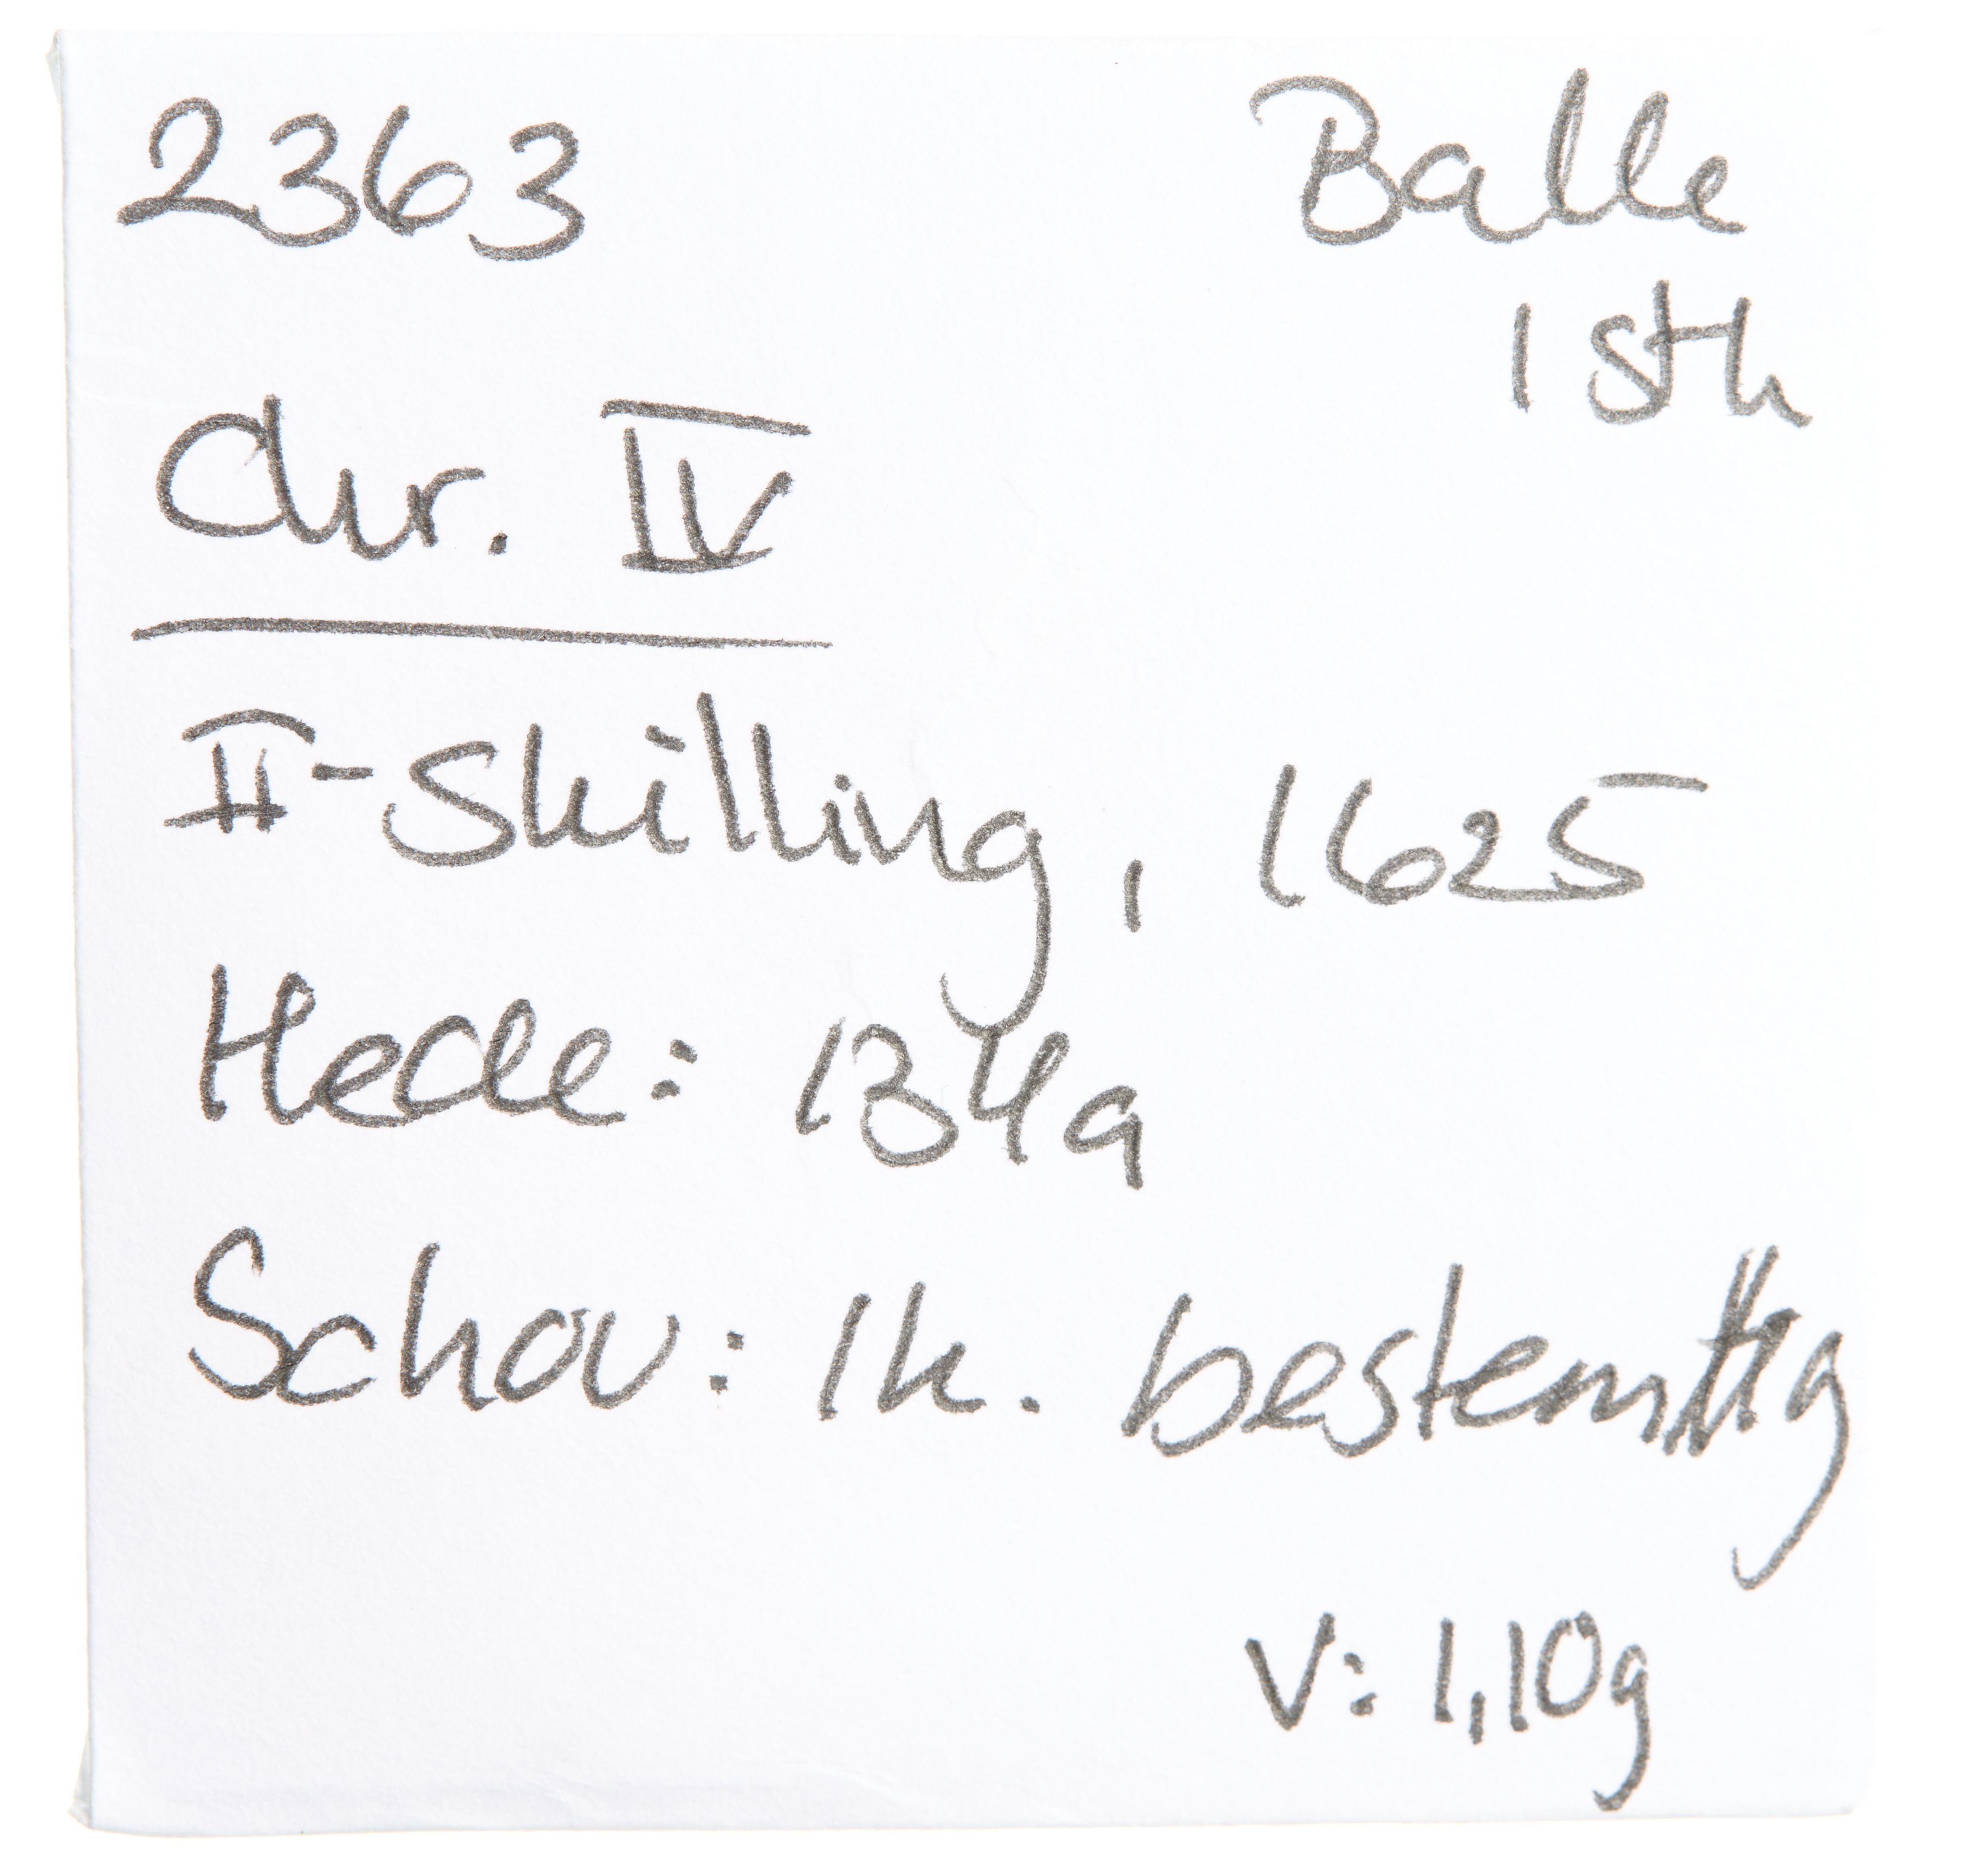 2363
Balle
1 stk
Chr. IV
II-Skilling, 1625
Hede: 134a
Schou: Ik. bestemttig
V: 1,10g